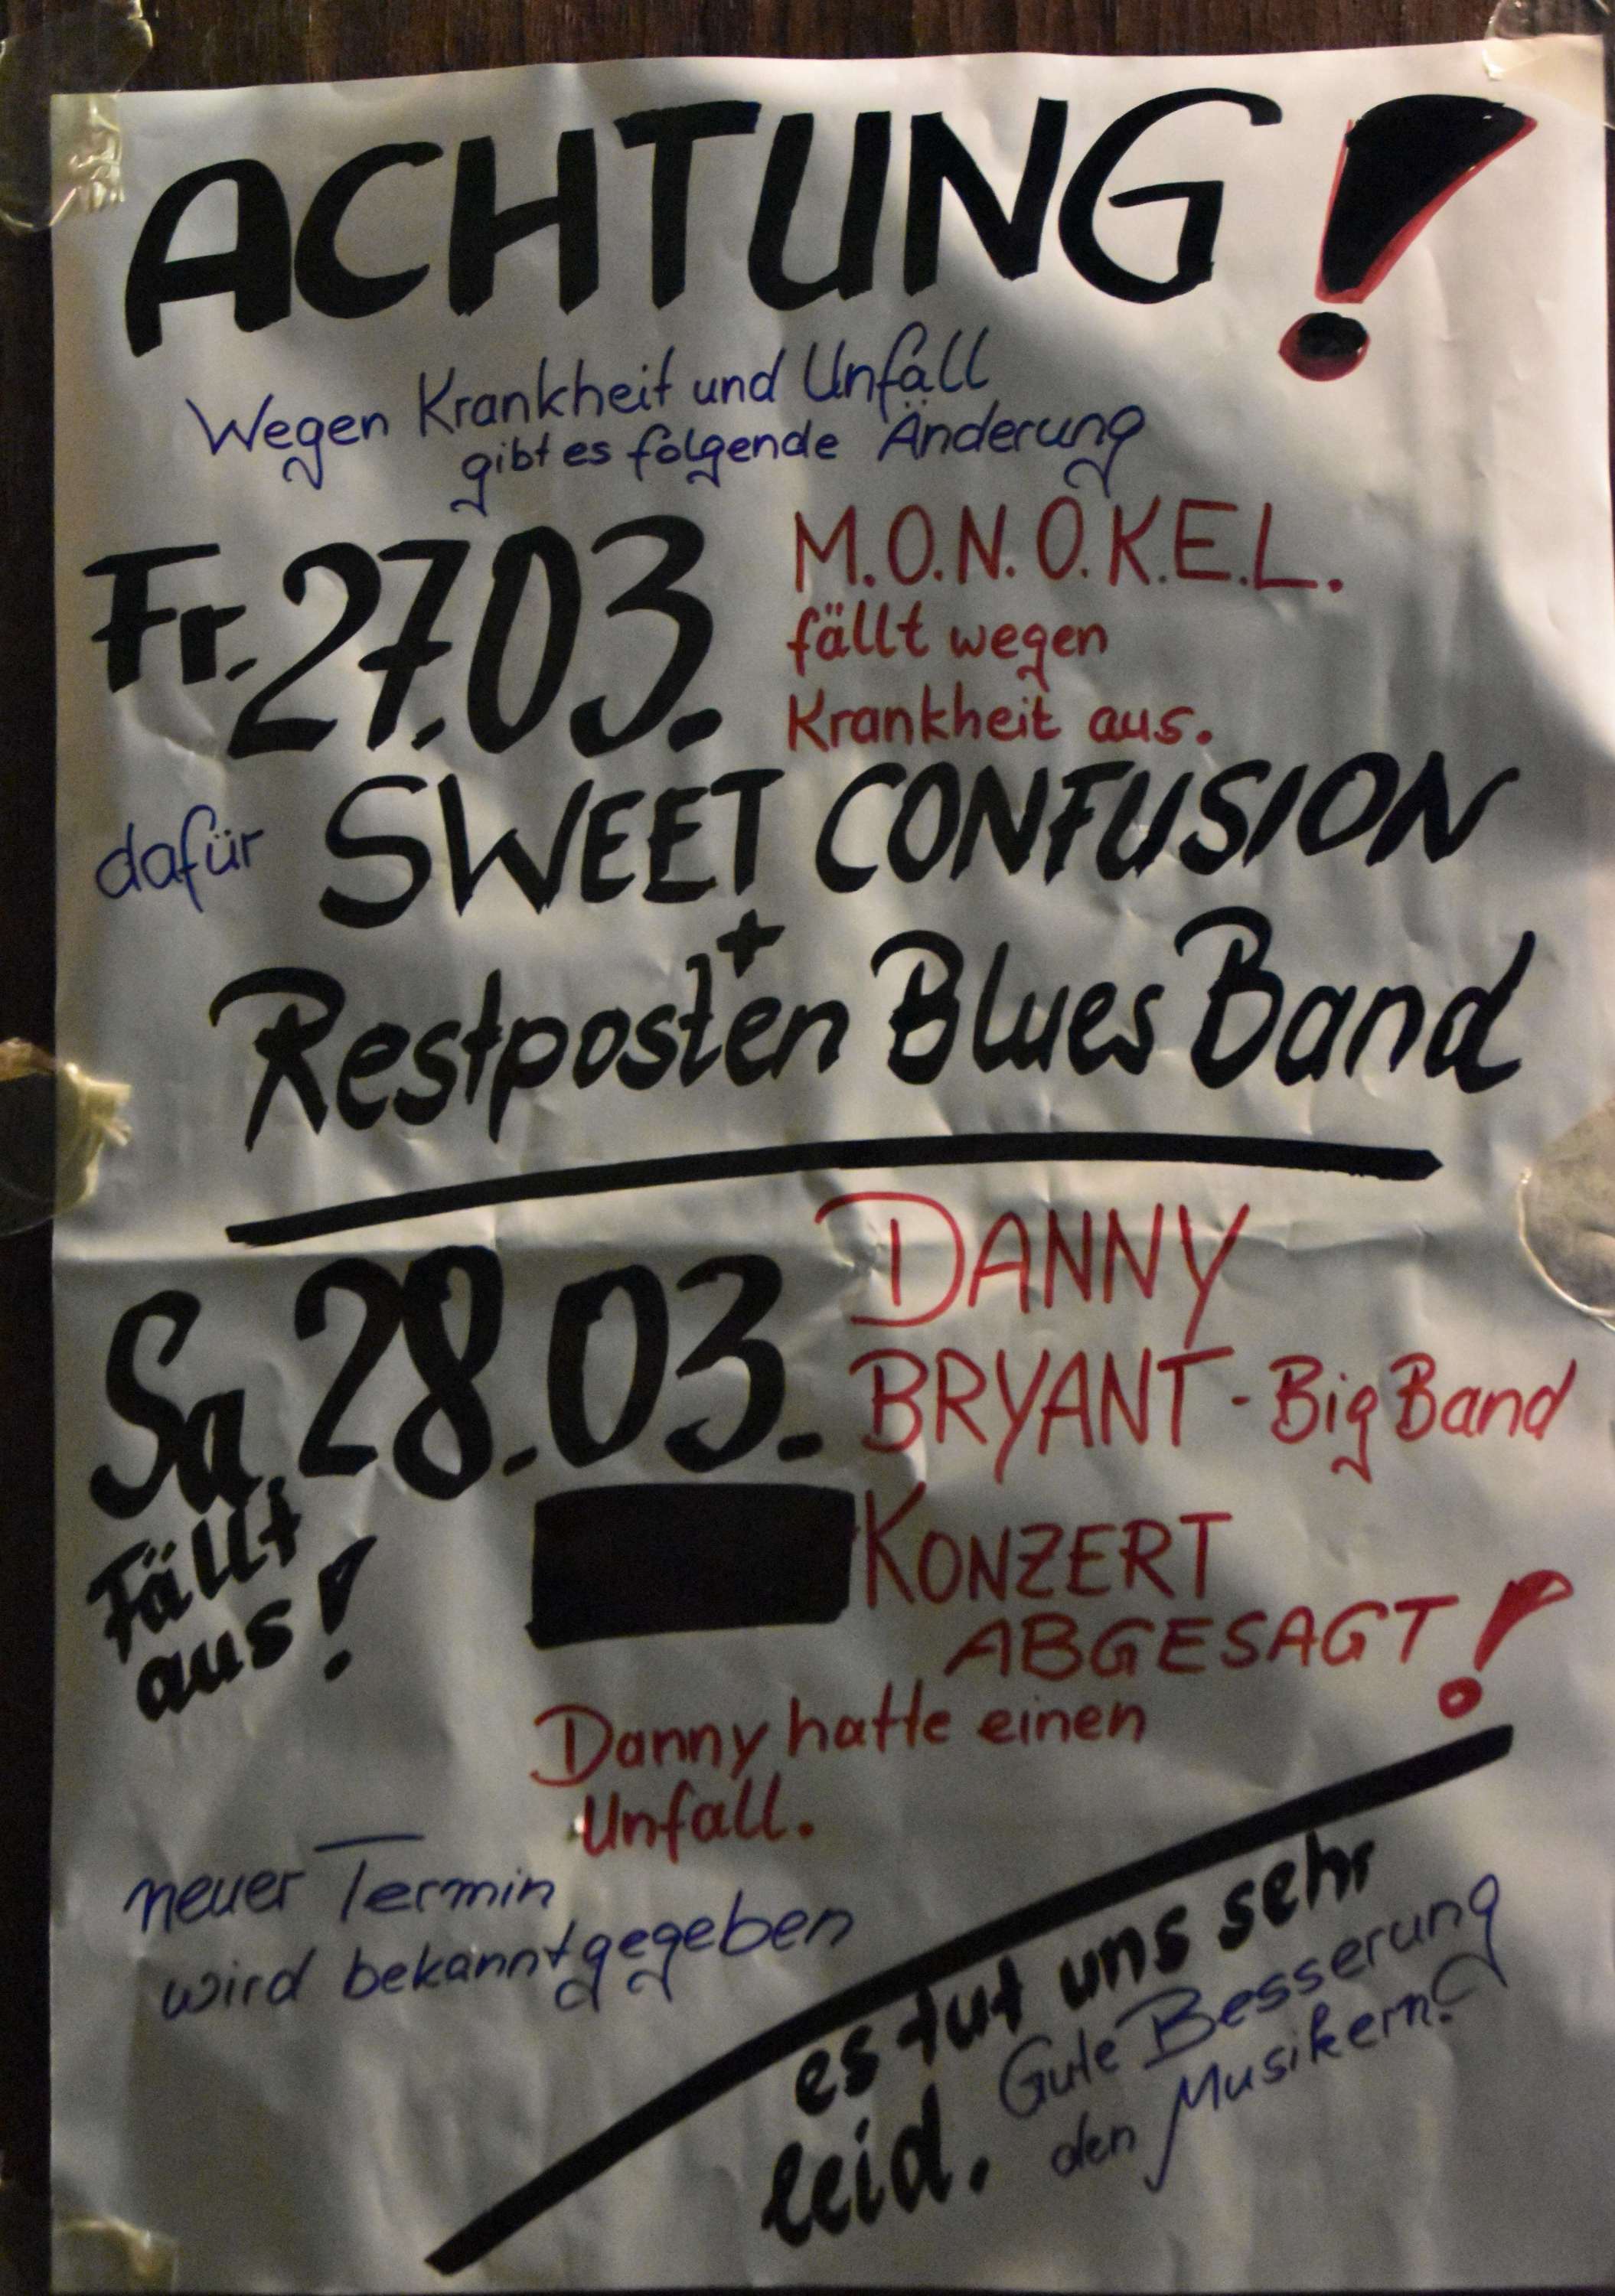 ACHTUNG!
Wegen Krankheit und Unfall
gibt es folgende Änderung
Fr. 27.03. M.O.N.O.K.E.L.
fällt wegen
Krankheit aus.
dafür SWEET CONFUSION
+
Restposten Blues Band
Sa. 28.03. DANNY
BRYANT - Big Band
Fällt
aus!
KONZERT
ABGESAGT!
Danny hatte einen
Unfall.
neuer Termin
wird bekanntgegeben
es tut uns sehr
leid.
Gute Besserung
den Musikern.